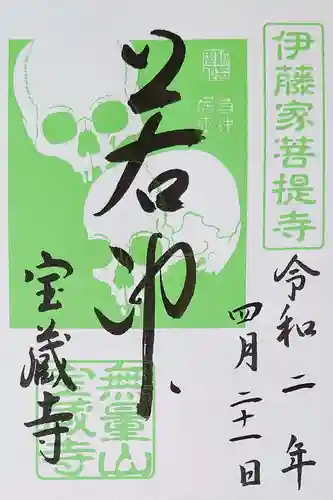 伊藤家菩提寺
令和二年
四月二十一日
若冲
宝蔵寺
無量山
宝蔵寺